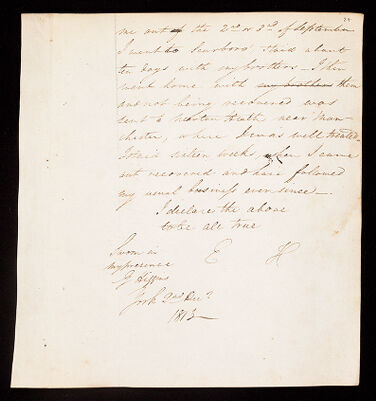 me out of the 2nd or 3rd of September
I went to Scarboro' Staid about
ten days with my brothers – I then
went home with my brothers them
and not being recovered was
sent to near Man-
chester, where I was well treated.
I staid sixteen weeks, when I came
out recovered and have followed
my usual business ever since –
I declare the above
to be all true
E H
Sworn in
my presence
G Higgins
York 2nd Decr
1813